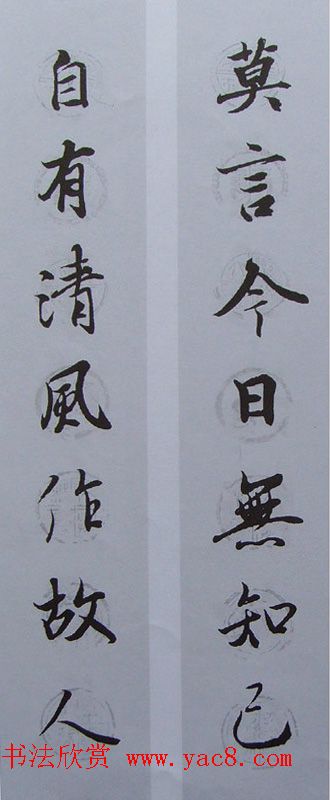 莫言今日無知己
自有清風作故人
书法欣赏 www.yac8.com